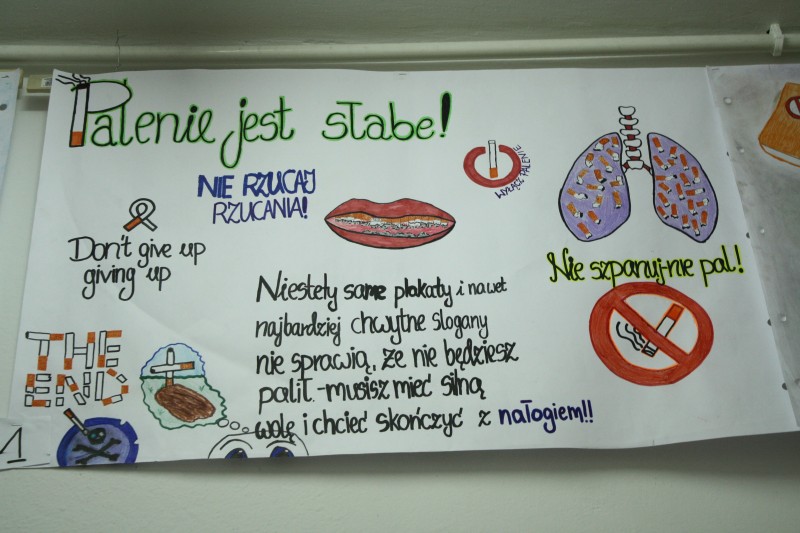 Palenie jest słabe!
NIE RZUCAJ
RZUCANIA!
WYŁĄCZ PALENIE
Don't give up
giving up
Nie szpanuj-nie pal!
Niestety same plakaty i nawet
najbardziej chwytne slogany
nie sprawią, że nie będziesz
palił.-musisz mieć silną
wolę i chcieć skończyć z nałogiem!!
THE
END
1